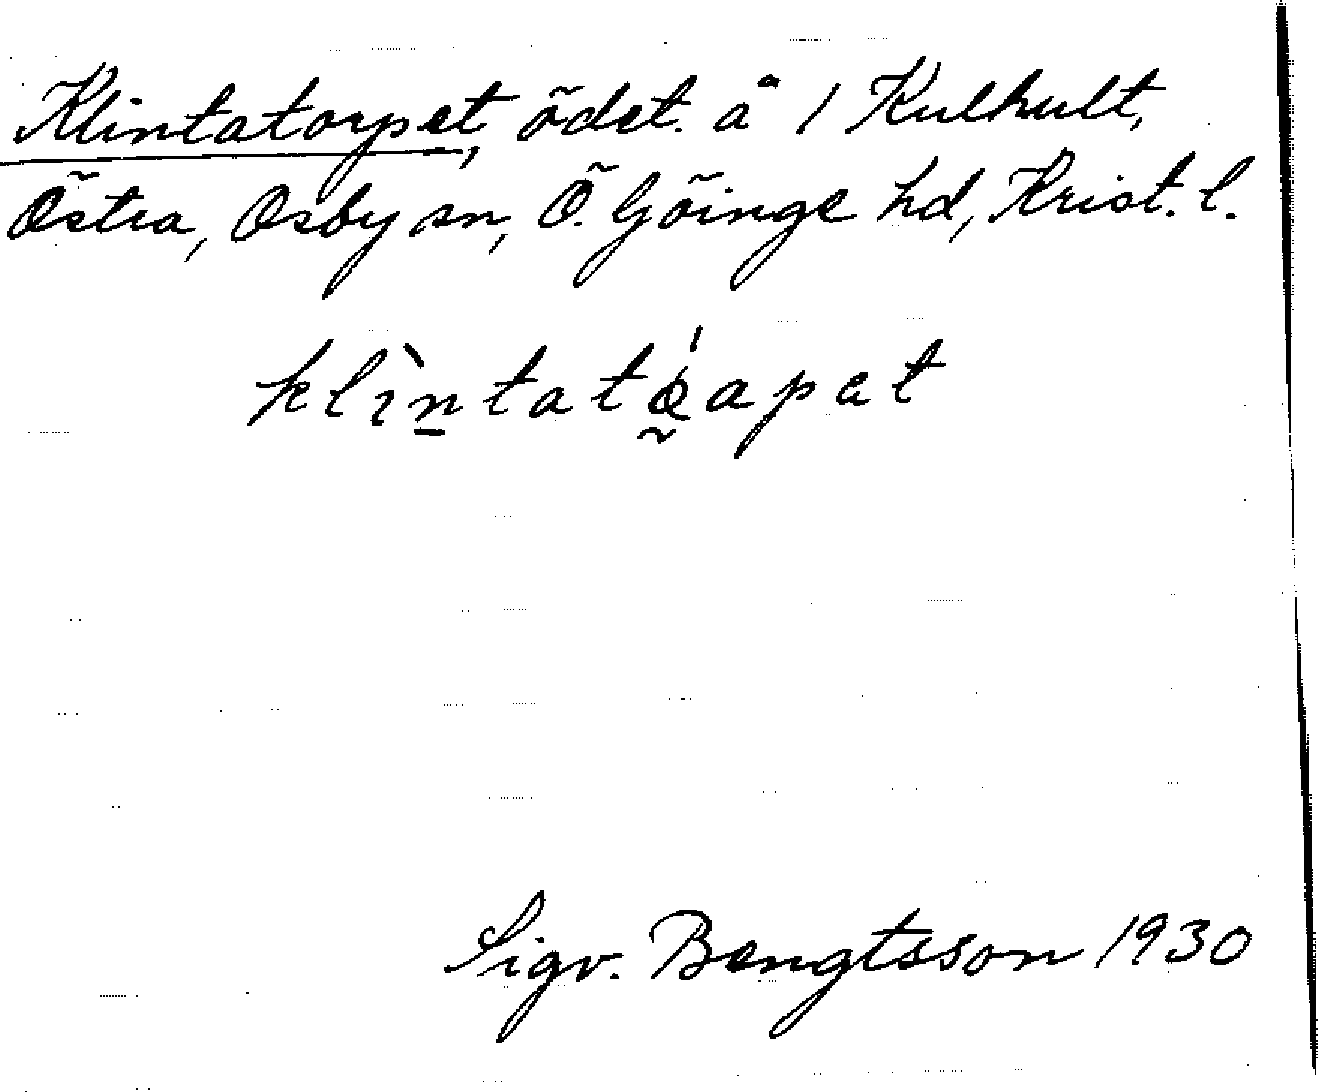 Klintatorpet, ödet. å 1 Kulhult,
Östra, Osby sn, Ö. Göinge hd, Krist. l.
klìntatǿapat
Sigv. Bengtsson 1930